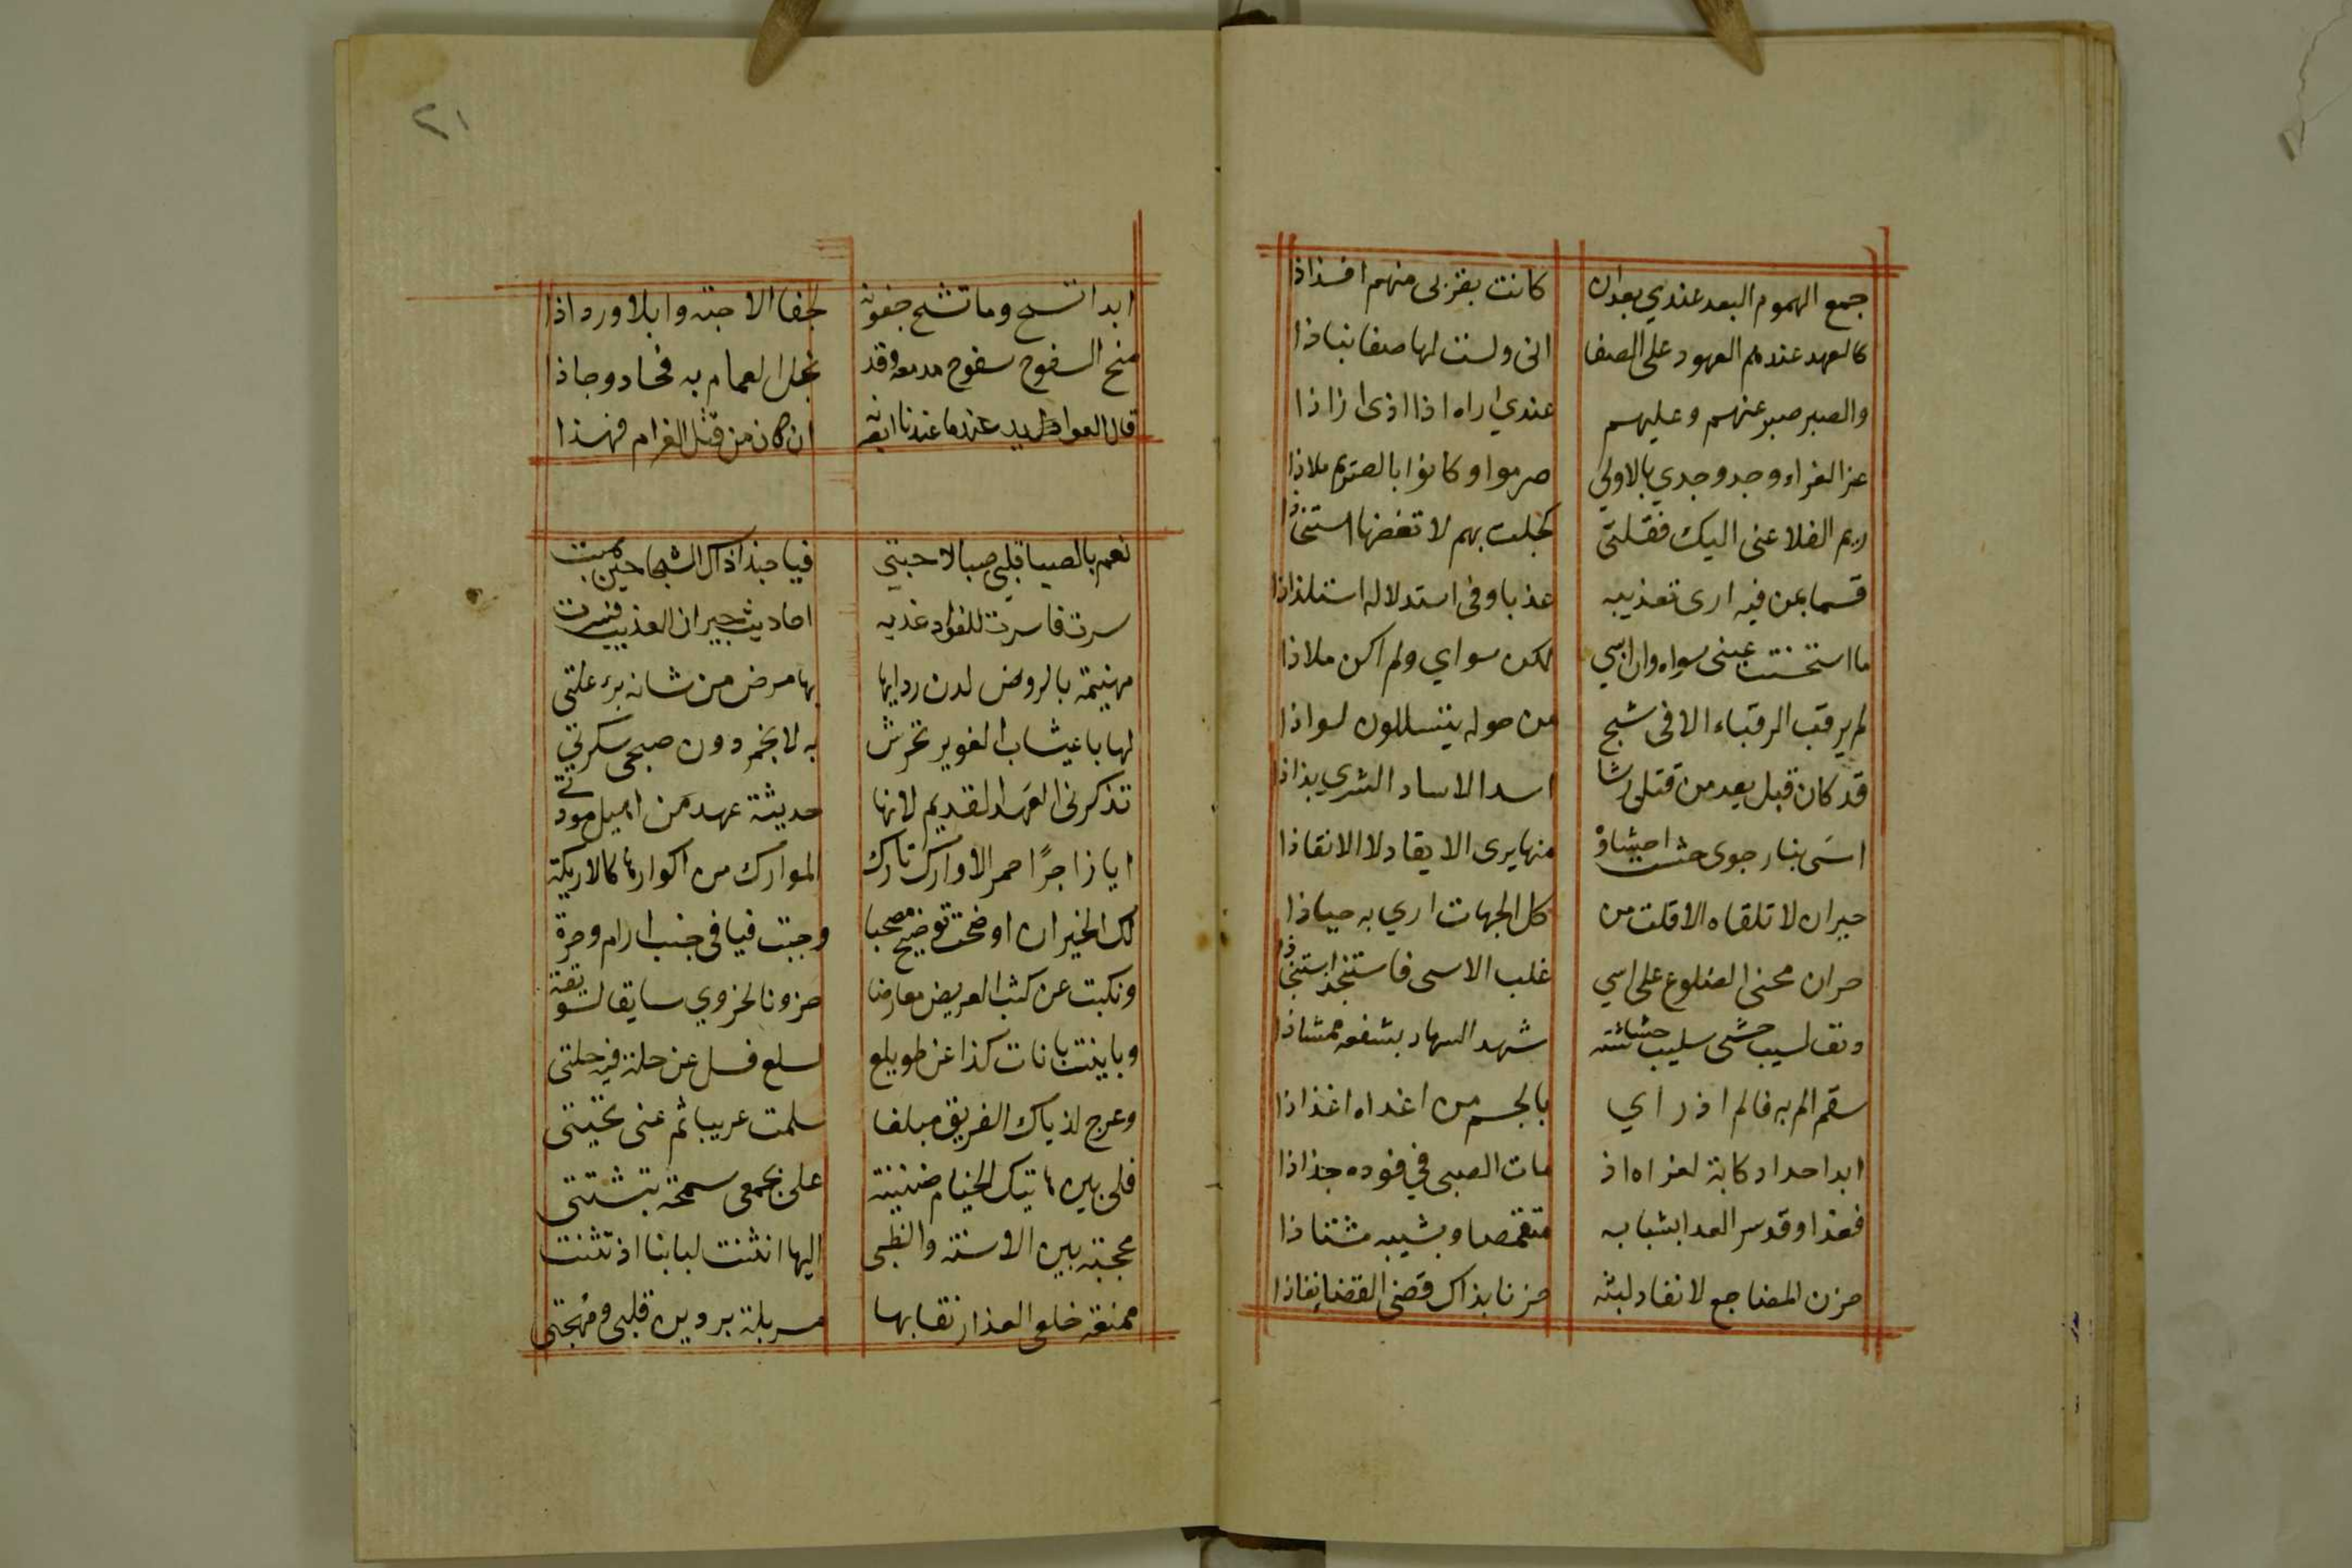 جمع الهموم البعد عندي بعد ان كانت بقربى منهم افذاذا
كالعهد عندهم العهود على الصفا انى ولست لها صفا نباذا
والصبر صبر عنهم وعليهم عندي اراه اذا اذى ازاذا
عز العزاء وجد وجدي بالاولى صرموا وكانوا بالصريم ملاذا
ريم الفلا عنى اليك فمقلتى كحلت بهم لا تغضها استخاذا
قسما بمن فيه ارى تعذيبه عذبا وفى استذلاله استلذاذا
ما استحسنت عينى سواه وان سبي لكن سواي ولم اكن ملاذا
لم يرقب الرقباء الا فى شبح من حوله يتسللون لواذا
قد كان قبل يعد من قتلى رشا اسدا لاساد الشرى بذاذا
امسى بنار جوى حشت احشاؤه منها يرى الايقاد لا الانقاذا
حيران لا تلقاه الا قلت من كل الجهات ارى به جباذا
حران محنى الضلوع على اسى غلب الاسى فاستنجذ استنجاذا
دنف لسيب حشى سليب حشاشة شهد السهاد بشفعه ممشاذا
سقم الم به فالم اذ راي بالجسم من اغداه اغذاذا
ابدا حداد كابة لعزاه اذ مات الصبى في فوده جذاذا
فغدا وقد سر العدا بشبابه متقمصا وبشيبه مشتاذا
حزن المضاجع لا نفاد لبثه حزنا بذاك قضى القضا نفاذا
٢١
ابدا تسح وما تشح جفونه لجفا الاحبة وابلا ورذاذا
منح السفوح سفوح مدمعه وقد بخل الغمام به فجاد وجاذا
قال العوايد عندما عندنا ابصرنه ان كان من قتل الغرام فهذا
نعم بالصبا قلبى صبا لاحبتى فيا حبذا ذاك الشذا حين هبت
سرت فاسرت للفواد غديه احاديث جيران العذيب فسرت
مهينمة بالروض لدن رداؤها بها مرض من شانه برء علتى
لها باعيشاب الغوير تحرش به لا بخمر دون صحبى سكرتي
تذكرنى العهد القديم لانها حديثة عهد من اهيل مودتي
ايا زاجرا حمر الاوارك تارك الموارك من اكوارها كالاريكة
لك الخير ان اوضحت توضيح مضحيا وجبت فيافى خبت ارام وجرة
ونكبت عن كثب العريض معارضا حزونا لحزوي سايقا لسويقة
وباينت بانات كذا عن طويلع لسلع فسل عن حلة فيه حلتى
وعرج لذياك الفريق مبلغا سلمت عريبا ثم عنى تحيتى
فلى بين هاتيك الخيام ضنينة على بجمعى سمحة بتشتتى
محجبة بين الاسنة والظبى اليها انثنت البابنا اذ تثنت
ممنعة خلع العذار نقابها مسربلة بردين قلبى ومهجتى